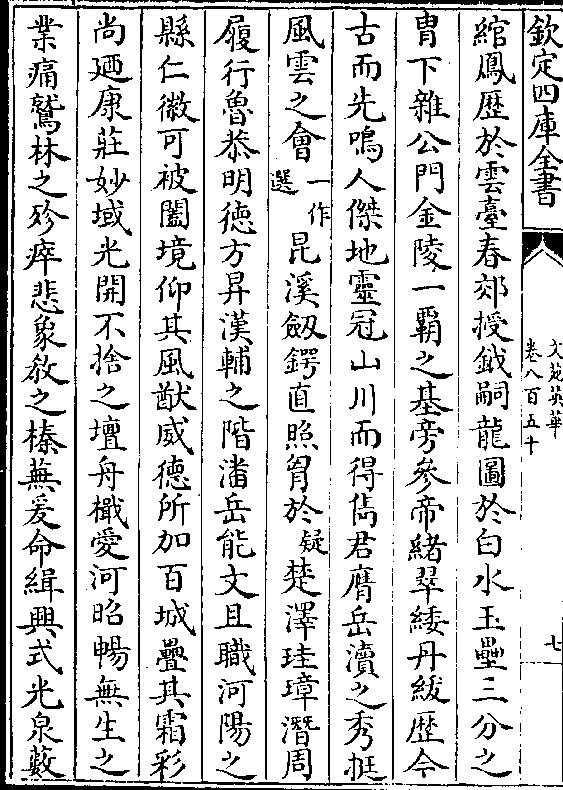 欽定四庫全書
文苑英華
卷八百五十
七
綰鳳歴於雲臺春郊授鉞嗣龍圖於白水玉壘三分之
胄下雜公門金陵一覇之基旁參帝緒翠緌丹紱歴今
古而先鳴人傑地靈冠山川而得儁君膺岳瀆之秀挺
風雲之會一作選昆溪劔鍔直照胷於疑楚澤珪璋潛周
履行魯恭明徳方昇漢輔之階潘岳能文且職河陽之
縣仁微可被闔境仰其風猷威德所加百城疊其霜彩
尚廼康莊妙域光開不捨之壇舟檝愛河昭暢無生之
業痛鷲林之殄瘁悲象敎之榛蕪爰命緝興式光泉藪